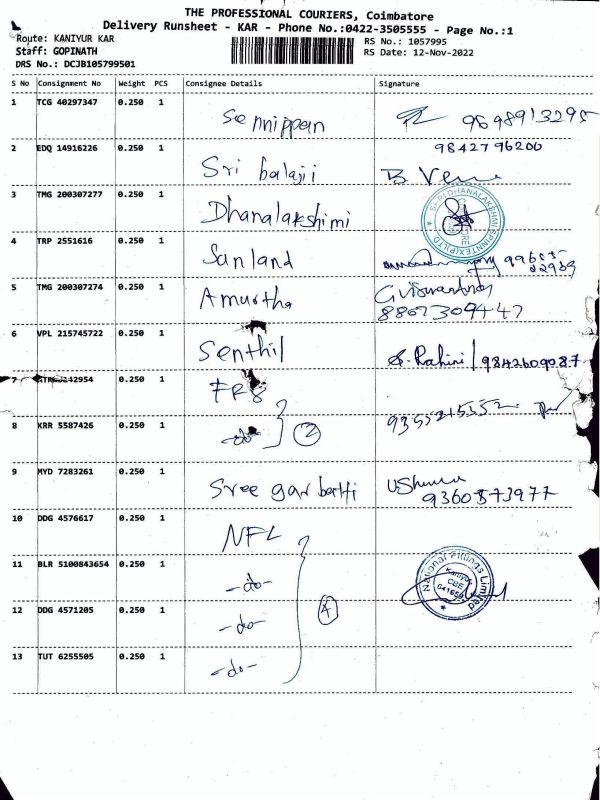 THE PROFESSIONAL COURIERS, Coimbatore
Delivery Runsheet - KAR - Phone No.:0422-3505555 - Page No.:1
Route: KANIYUR KAR
RS No.: 1057995
Staff: GOPINATH
RS Date: 12-Nov-2022
DRS No.: DCJB105799501
S No Consignment No Weight PCS Consignee Details Signature
1 TCG 40297347 0.250 1 Sennippan 9698913295
2 EDQ 14916226 0.250 1 Sri balaji 9842796200
3 TMG 200307277 0.250 1 Dhanalakshimi
4 TRP 2551616 0.250 1 Sanland
5 TMG 200307274 0.250 1 Amurtha 8867309447
6 VPL 215745722 0.250 1 Senthil S. Rahini / 9842609087
7 0.250 1 FRS
8 KRR 5587426 0.250 1 -do- 2 9355215552
9 MYD 7283261 0.250 1 Sree gar bathi 9360573977
10 DDG 4576617 0.250 1 NFL
11 BLR 5100843654 0.250 1 -do- National Fittings Limited Kaniyur CBE 641659
12 DDG 4571205 0.250 1 -do- 4
13 TUT 6255505 0.250 1 -do-